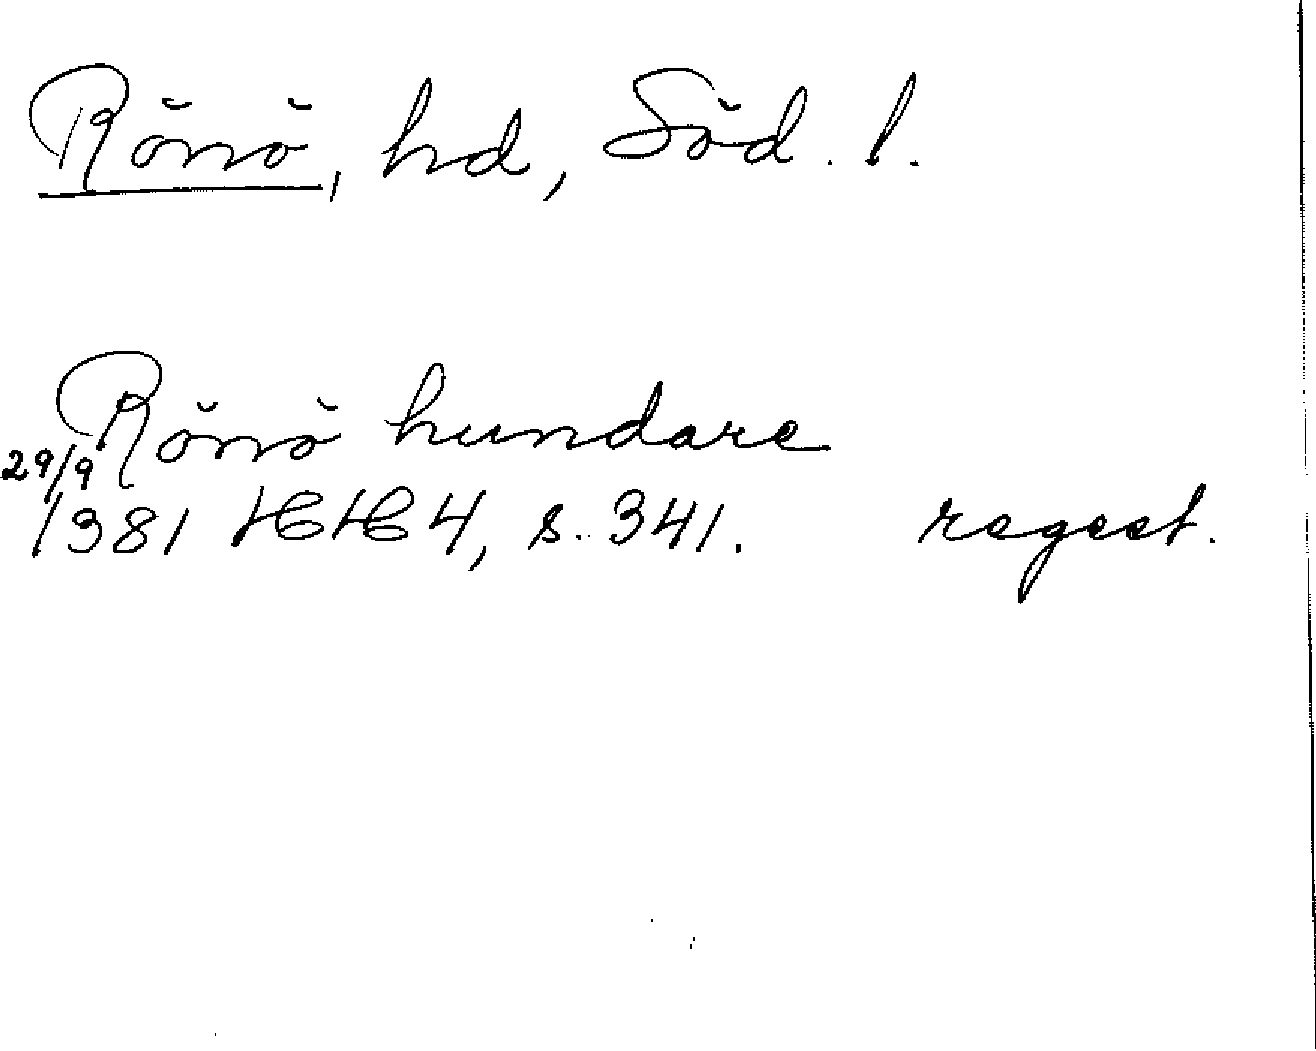 Rönö, hd, Söd. l.
Rönö hundare
29/9
1381 HH 4, s. 341. regest.